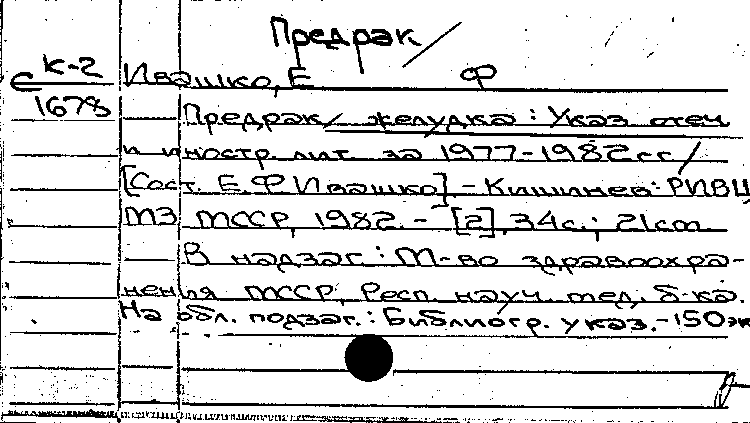 Предрак/
К-2
С
1678
Ивашко, Е Ф
Предрак/ желудка : Указ отеч
и иностр. лит. за 1977-1982 гг/
[Сост. Е.Ф Ивашко] - Кишинев: РИВЦ
МЗ МССР, 1982. - [2], 34с.; 21см.
В надзаг : М-во здравоохра-
нения МССР, Респ. науч. мед. б-ка.
На обл. подзаг. : Библиогр. указ. - 150 эк